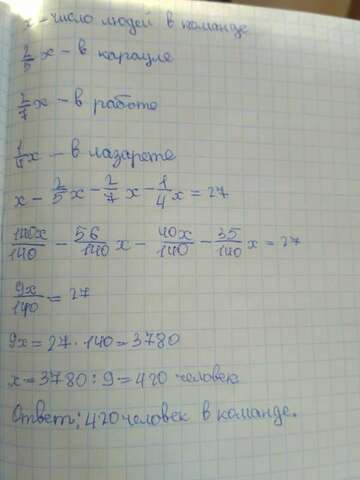 x - число людей в команде
2/5 x - в карауле
2/7 x - в работе
1/4 x - в лазарете
x - 2/5 x - 2/7 x - 1/4 x = 27
140x/140 - 56/140 x - 40x/140 - 35/140 x = 27
9x/140 = 27
9x = 27 · 140 = 3780
x = 3780 : 9 = 420 человек
Ответ: 420 человек в команде.